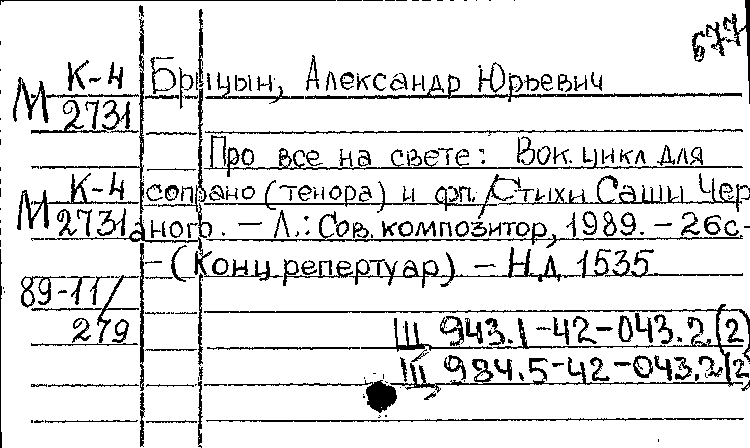 677
М К-4 Брицын, Александр Юрьевич
2731
Про все на свете: Вок. цикл для
М К-4 сопрано (тенора) и фп. / Стихи Саши Чер
2731 аного. – Л.: Сов. композитор, 1989. – 26с.-
– (Конц. репертуар) – Н.д. 1535
89-11/
279
Ш 943.1-42-043.2(2)
Ш 984.5-42-043.2(2